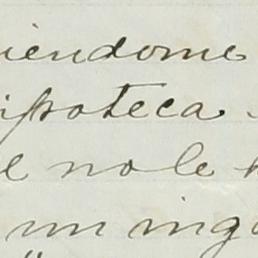 iendome
ipoteca
e no le h
un ing